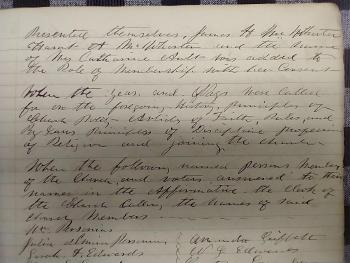 Presented themselves, James H. McWhorter
Harriet A McWhorter and the name
of Mrs Catharine Ault was added to
the Role of Membership with her Consent
When the yeas and Nays were Called
for on the foregoing History, principles of
Church Polity Articles of Faith, Rules, and
By Laws Principles of Discipline profession
of Religion and joining the church
When the following named persons Members
of the Church and voters answered to their
names in the Affirmative the Clerk of
the Church Calling the Names of said
Church Members
Wm Persenius
Julia Persenius
Sarah F Edwards
Amanda Gribbett
W F Edwards